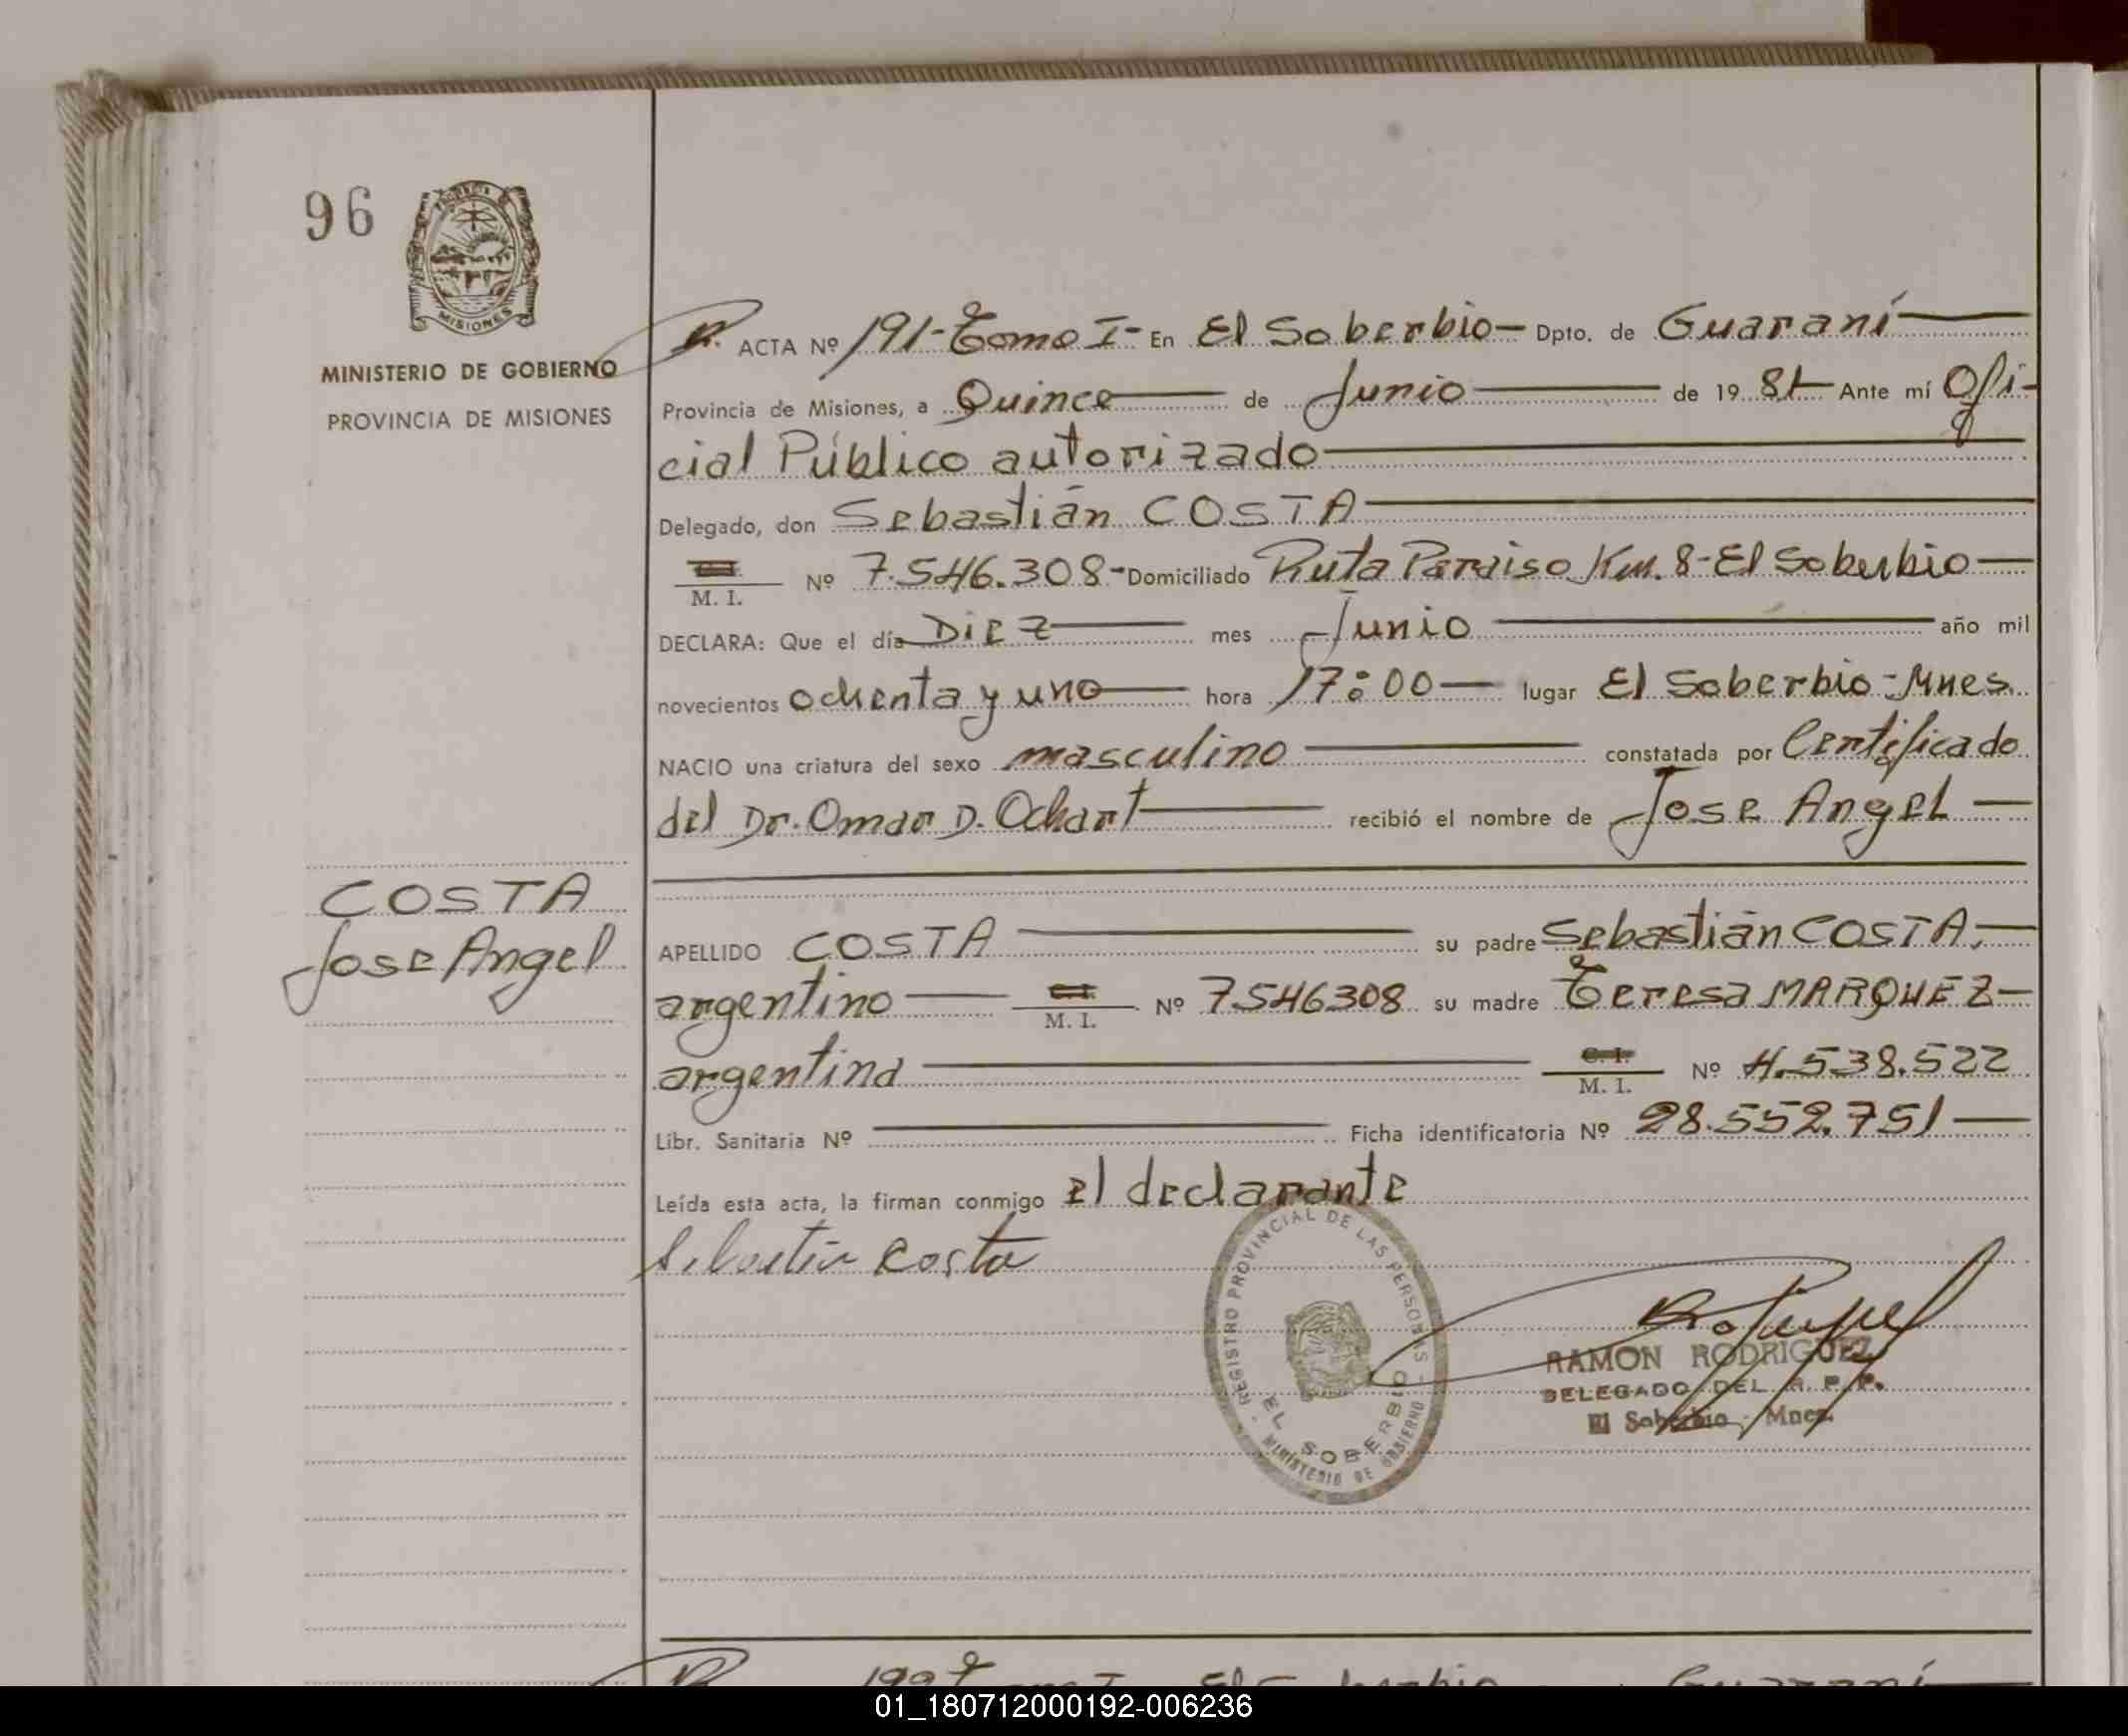 96
MISIONES
MINISTERIO DE GOBIERNO
PROVINCIA DE MISIONES
ACTA Nº 191-Tomo I- En El Soberbio- Dpto. de Guaraní
Provincia de Misiones, a Quince de Junio de 19 81 Ante mí Ofi-
cial Público autorizado
Delegado, don Sebastián COSTA
M. I. Nº 7.546.308- Domiciliado Ruta Paraiso Km. 8-El Soberbio
DECLARA: Que el día Diez mes Junio año mil
novecientos ochenta y uno hora 17:00 lugar El Soberbio-Mnes.
NACIO una criatura del sexo masculino constatada por Certificado
del Dr. Omar D. Ochart recibió el nombre de Jose Angel
COSTA
Jose Angel
APELLIDO COSTA su padre Sebastián COSTA,
argentino C. I. M. I. Nº 7546308 su madre Teresa MARQUEZ
argentina C. I. M. I. Nº 4.538.522
Libr. Sanitaria Nº Ficha identificatoria Nº 28.552.751
Leída esta acta, la firman conmigo el declarante
Sebastián Costa
REGISTRO PROVINCIAL DE LAS PERSONAS
EL SOBERBIO
MINISTERIO DE GOBIERNO
RAMON RODRIGUEZ
DELEGADO DEL R. P. P.
El Soberbio, Mnes.
01_180712000192-006236